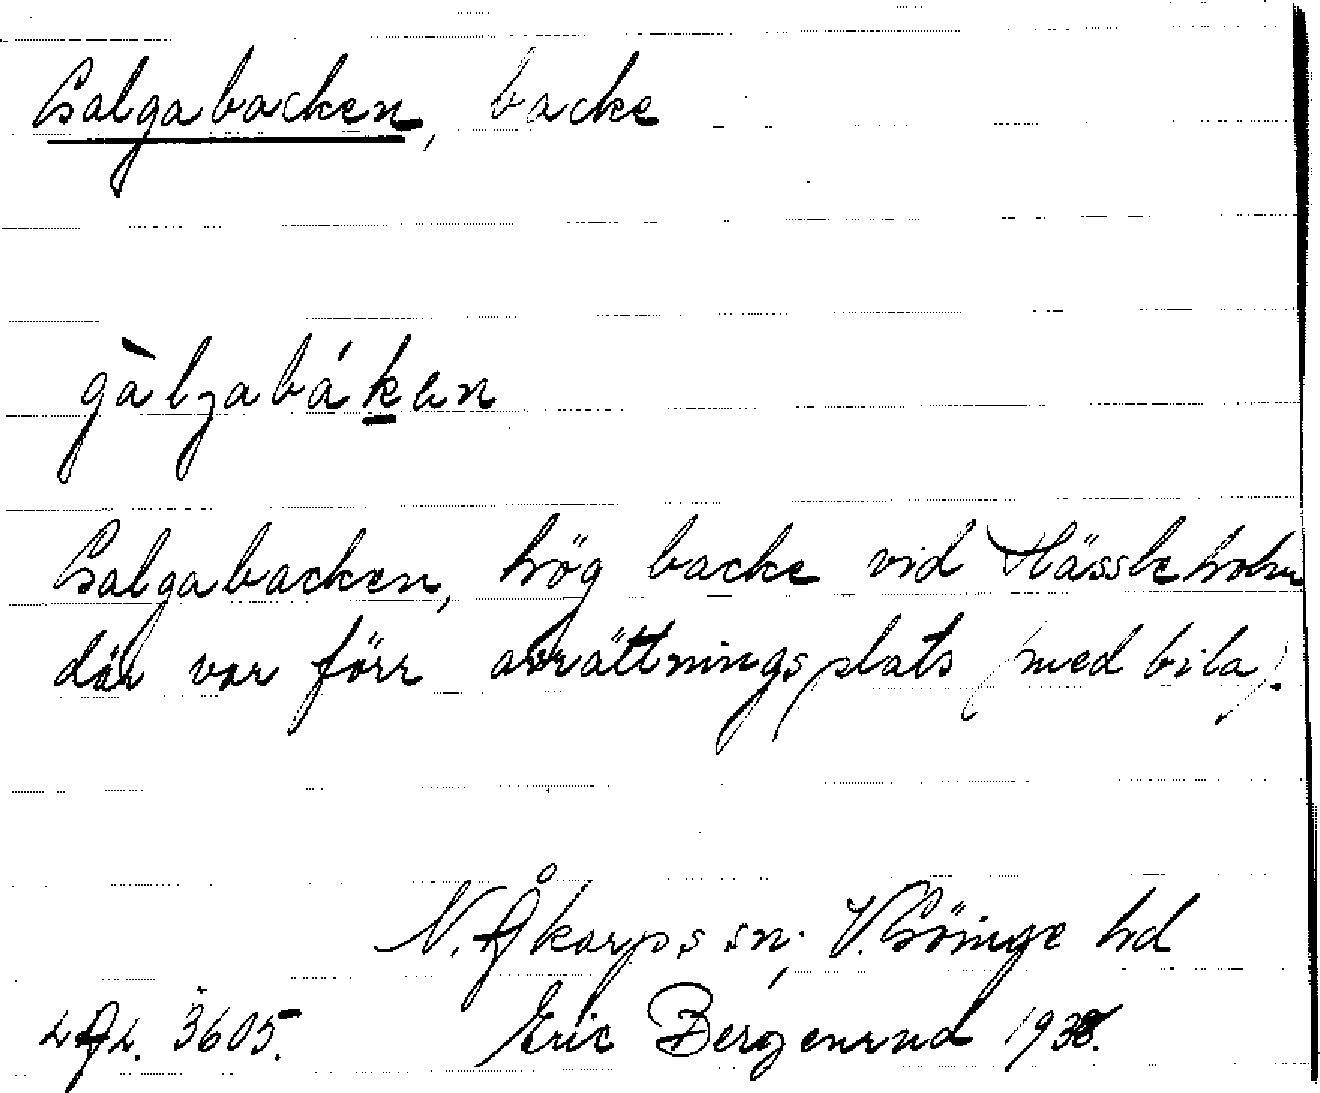 Galgabacken, backe
gàlgabákan
Galgabacken, hög backe vid Hässleholm
där var förr avrättningsplats (med bila).
N. Åkarps sn; V. Göinge hd
LAL. 3605. Eric Bergenrud 1938.